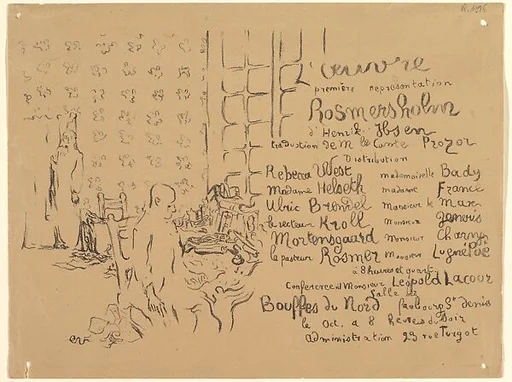 R.196
L'œuvre
première représentation
Rosmersholm
d'Henrik Ibsen
traduction de M le Comte Prozor
Distribution
Rebecca West mademoiselle Bady
Madame Helseth madame France
Ulric Brendel Monsieur le Max
le recteur Kroll Monsieur
Mortensgaard Monsieur Charny
le pasteur Rosmer Monsieur Lugné Poë
à 8 heures et quart
Conférence de Monsieur Léopold Lacour
Salle des
Bouffes du Nord faubourg St denis
le Oct. a 8 heures du soir
administration 23 rue Turgot
ev